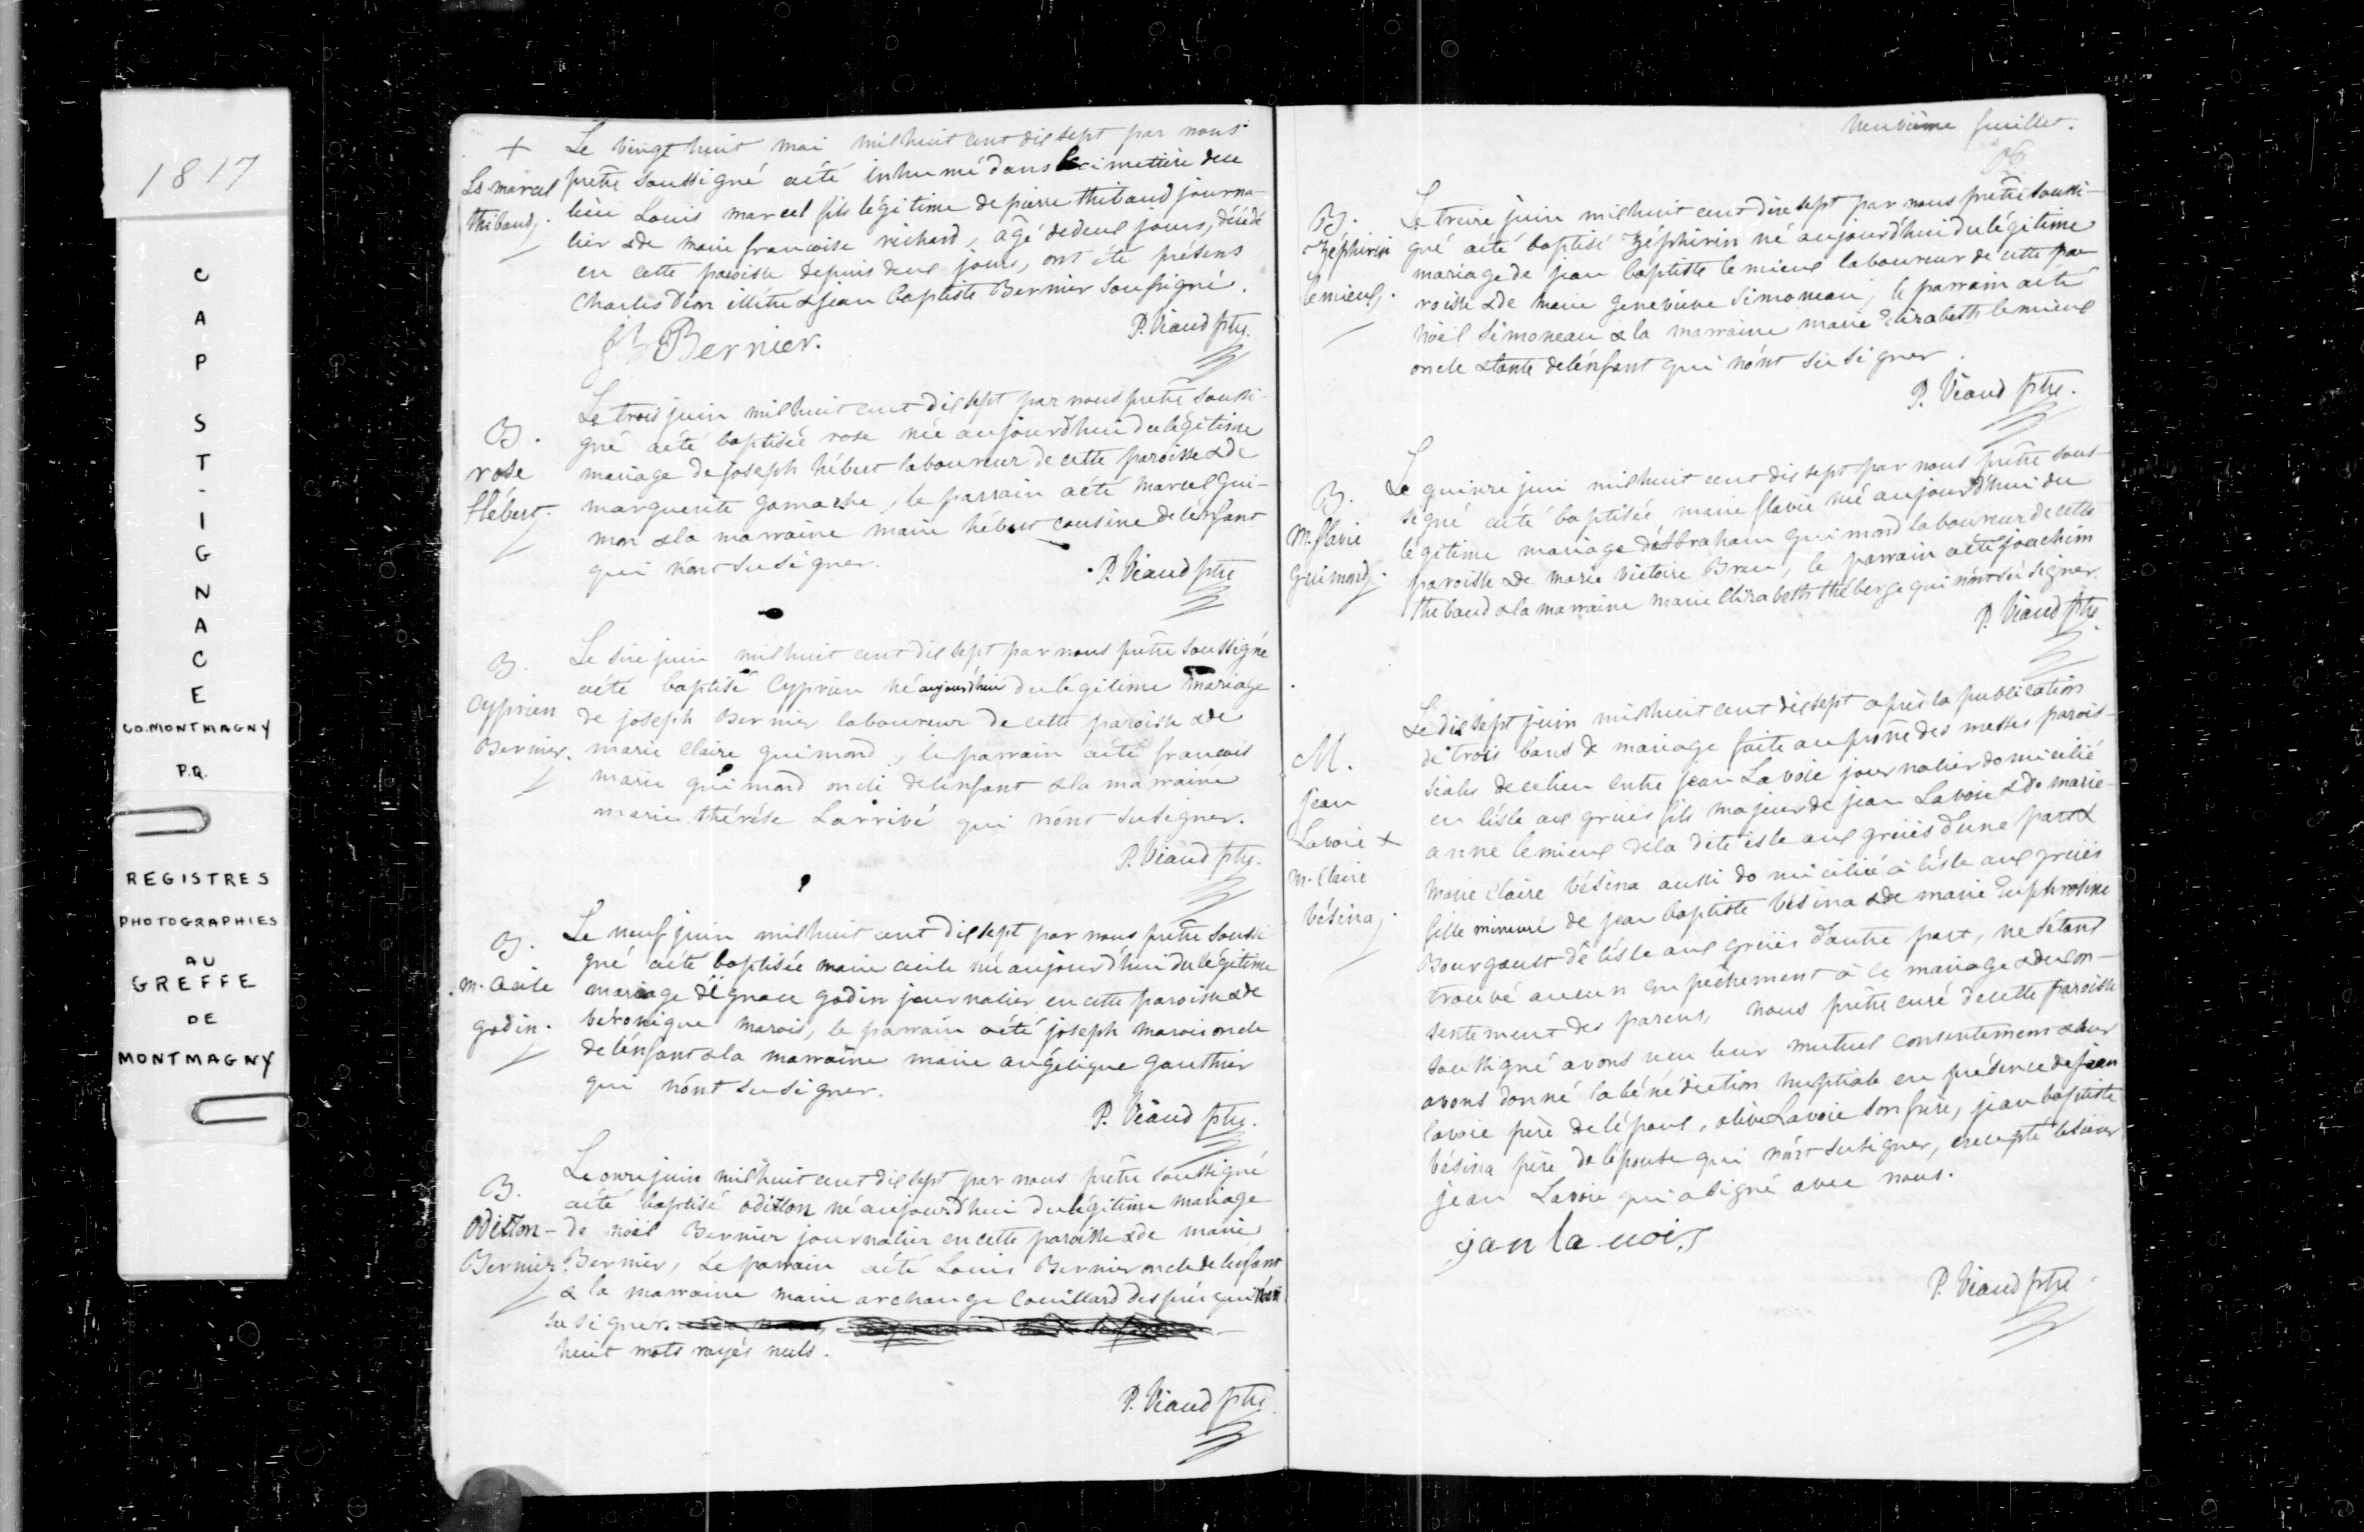 1817
CAP ST-IGNACE
CO. MONTMAGNY
P.Q.
REGISTRES
PHOTOGRAPHIES
AU
GREFFE
DE
MONTMAGNY
+
Ls marcel
thibaud.
Le vingt huit mai mil huit cent dix sept par nous
prêtre soussigné aété inhumé dans le cimettiere de ce
lieu Louis marcel fils légitime de pierre thibaud journa-
lier & de marie francoise richard, âgé de deux jours, décédé
en cette paroisse depuis deux jours, ont été présens
Charles Dion illétré & jean baptiste Bernier soussigné.
JB Bernier.
P. Viaud ptre.
B.
rose
Hébert.
Le trois juin mil huit cent dix sept par nous prêtre soussi-
gné aété baptisée rose née aujourd'hui du légitime
mariage de joseph hébert laboureur de cette paroisse & de
marguerite gamache, le parrain aété marcel gui-
mon & la marraine marie hébert cousine de l'énfant
qui n'ont su signer.
P. Viaud ptre
B.
Cyprien
Bernier.
Le sixe juin mil huit cent dix sept par nous prêtre soussigné
aété baptisé Cyprien né aujourd'hui du légitime mariage
de joseph Bernier laboureur de cette paroisse & de
marie claire guimond, le parrain aété francois
marie guimond oncle de l'enfant & la marraine
marie thérése Larrivé qui n'ont su signer.
P. Viaud ptre.
B.
m. Cecile
godin.
Le neuf juin mil huit cent dix sept par nous prêtre soussi
gné aété baptisée marie cecile née aujourd'hui du légitime
mariage d'ignace godin journalier en cette paroisse & de
véronique marois, le parrain aété joseph marois oncle
de l'énfant & la marraine marie angélique gauthier
qui n'ont su signer.
P. Viaud ptre.
B.
Oditton
Bernier.
Le onze juin mil huit cent dix sept par nous prêtre soussigné
aété baptisé oditton né aujourd'hui du légitime mariage
de noël Bernier journalier en cette paroisse & de marie
Bernier, Le parrain aété Louis Bernier oncle de l'enfant
& la marraine marie archange Couillard després qui n'ont
su signer.
huit mots rayés nuls.
P. Viaud ptre.
neuvième feuillet.
B.
Zéphirin
lemieux.
Le treize juin mil huit cent dixe sept par nous prêtre soussi-
gné aété baptisé Zéphirin né aujourd'hui du légitime
mariage de jean baptiste lemieux laboureur de cette pa-
roisse & de marie genevieve Simoneau, le parrain aété
noël Simoneau & la marraine marie Elizabeth lemieux
oncle & tante de l'énfant qui n'ont su signer.
P. Viaud ptre.
B.
M. flavie
Guimond.
Le quinze juin mil huit cent dix sept par nous prêtre sous-
signé aété baptisée marie flavie née aujourd'hui du
legitime mariage d'Abraham guimond laboureur de cette
paroisse & de marie victoire Brau, le parrain aété joachim
thibaud & la marraine marie Elizabeth théberge qui n'ont su signer.
P. Viaud ptre.
M.
jean
Lavoie &
m. claire
vésina.
Le dix sept juin mil huit cent dix sept après la publication
de trois bans de mariage faite au prône des messes parois-
siales de ce lieu entre jean Lavoie journalier domicilié
en l'isle aux grües fils majeur de jean Lavoie & de marie-
anne lemieux de la dite isle aux grües d'une part &
Marie Claire vésina aussi domiciliée à l'isle aux grües
fille mineure de jean baptiste vésina & de marie Euphrosine
Bourgault de l'isle aux grües d'autre part, ne s'étant
trouvé aucun empêchement à ce mariage & du con-
sentement des parens, nous prêtre curé de cette paroisse
soussigné avons reçu leur mutuel consentement & leur
avons donné la bénédiction nuptiale en présence de jean
lavoie père de l'époux, olive Lavoie son frère, jean baptiste
vésina père de l'épouse qui n'ont su signer, excepté le sieur
jean Lavoie qui a signé avec nous.
jan la vois
P. Viaud ptre